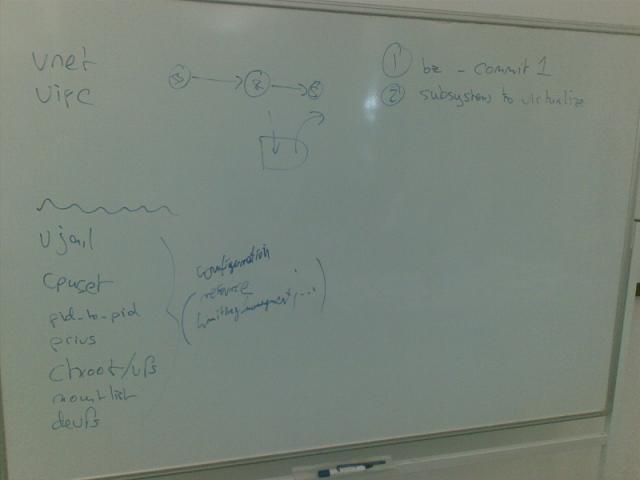 vnet
vipc
① bz - commit 1
② subsystems to virtualize
vjail
cpuset
pid_to_pid
privs
chroot/vfs
mountlist
devfs
configuration
resource
limiting/management, ...